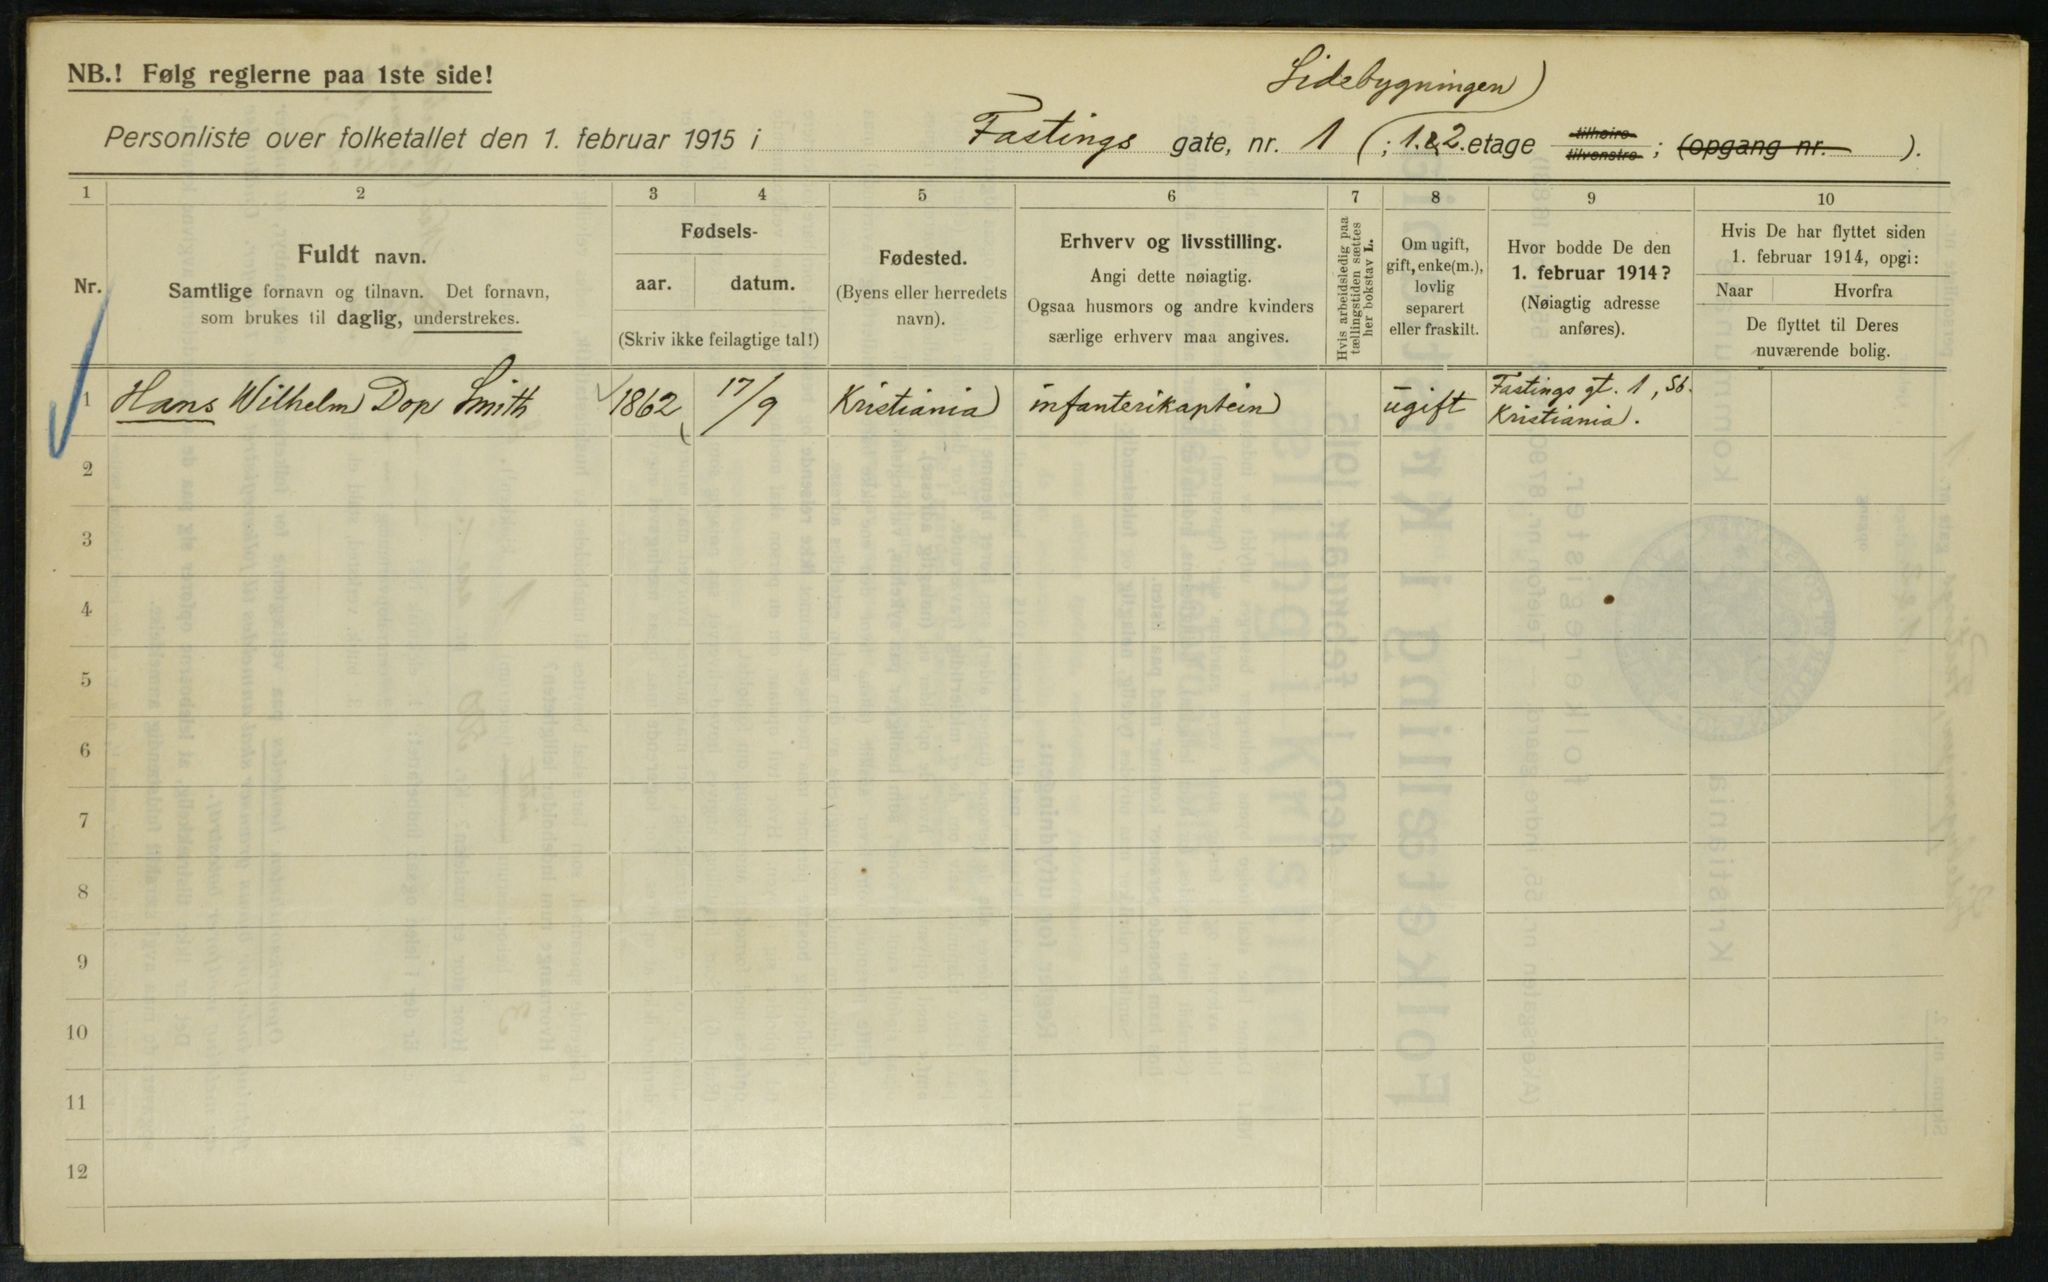 NB.! Følg reglerne paa 1ste side!
Sidebygningen)
Personliste over folketallet den 1. februar 1915 i Fastings gate, nr. 1 (; 1. & 2. etage tilhøire tilvenstre ; (opgang nr. ).
1 2 3 4 5 6 7 8 9 10
Nr.
Fuldt navn.
Samtlige fornavn og tilnavn. Det fornavn,
som brukes til daglig, understrekes.
Fødsels-
aar. datum.
(Skriv ikke feilagtige tal!)
Fødested.
(Byens eller herredets
navn).
Erhverv og livsstilling.
Angi dette nøiagtig.
Ogsaa husmors og andre kvinders
særlige erhverv maa angives.
Hvis arbeidsledig paa
tællingstiden sættes
her bokstav L.
Om ugift,
gift, enke(m.),
lovlig
separert
eller fraskilt.
Hvor bodde De den
1. februar 1914?
(Nøiagtig adresse
anføres).
Hvis De har flyttet siden
1. februar 1914, opgi:
Naar Hvorfra
De flyttet til Deres
nuværende bolig.
1 Hans Wilhelm Dop Smith 1862 17/9 Kristiania infanterikaptein ugift Fastings gt. 1, Sb.
Kristiania.
2
3
4
5
6
7
8
9
10
11
12